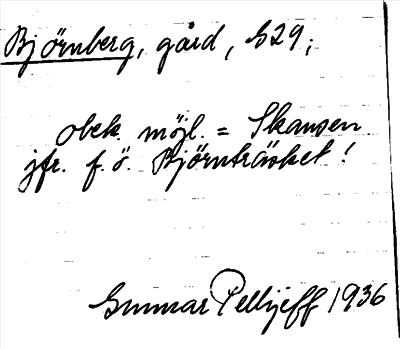 Björnberg, gård, S29;
obek. möjl. = Skansen
jfr. f. ö. Björnträsket!
Gunnar Pellijeff 1936